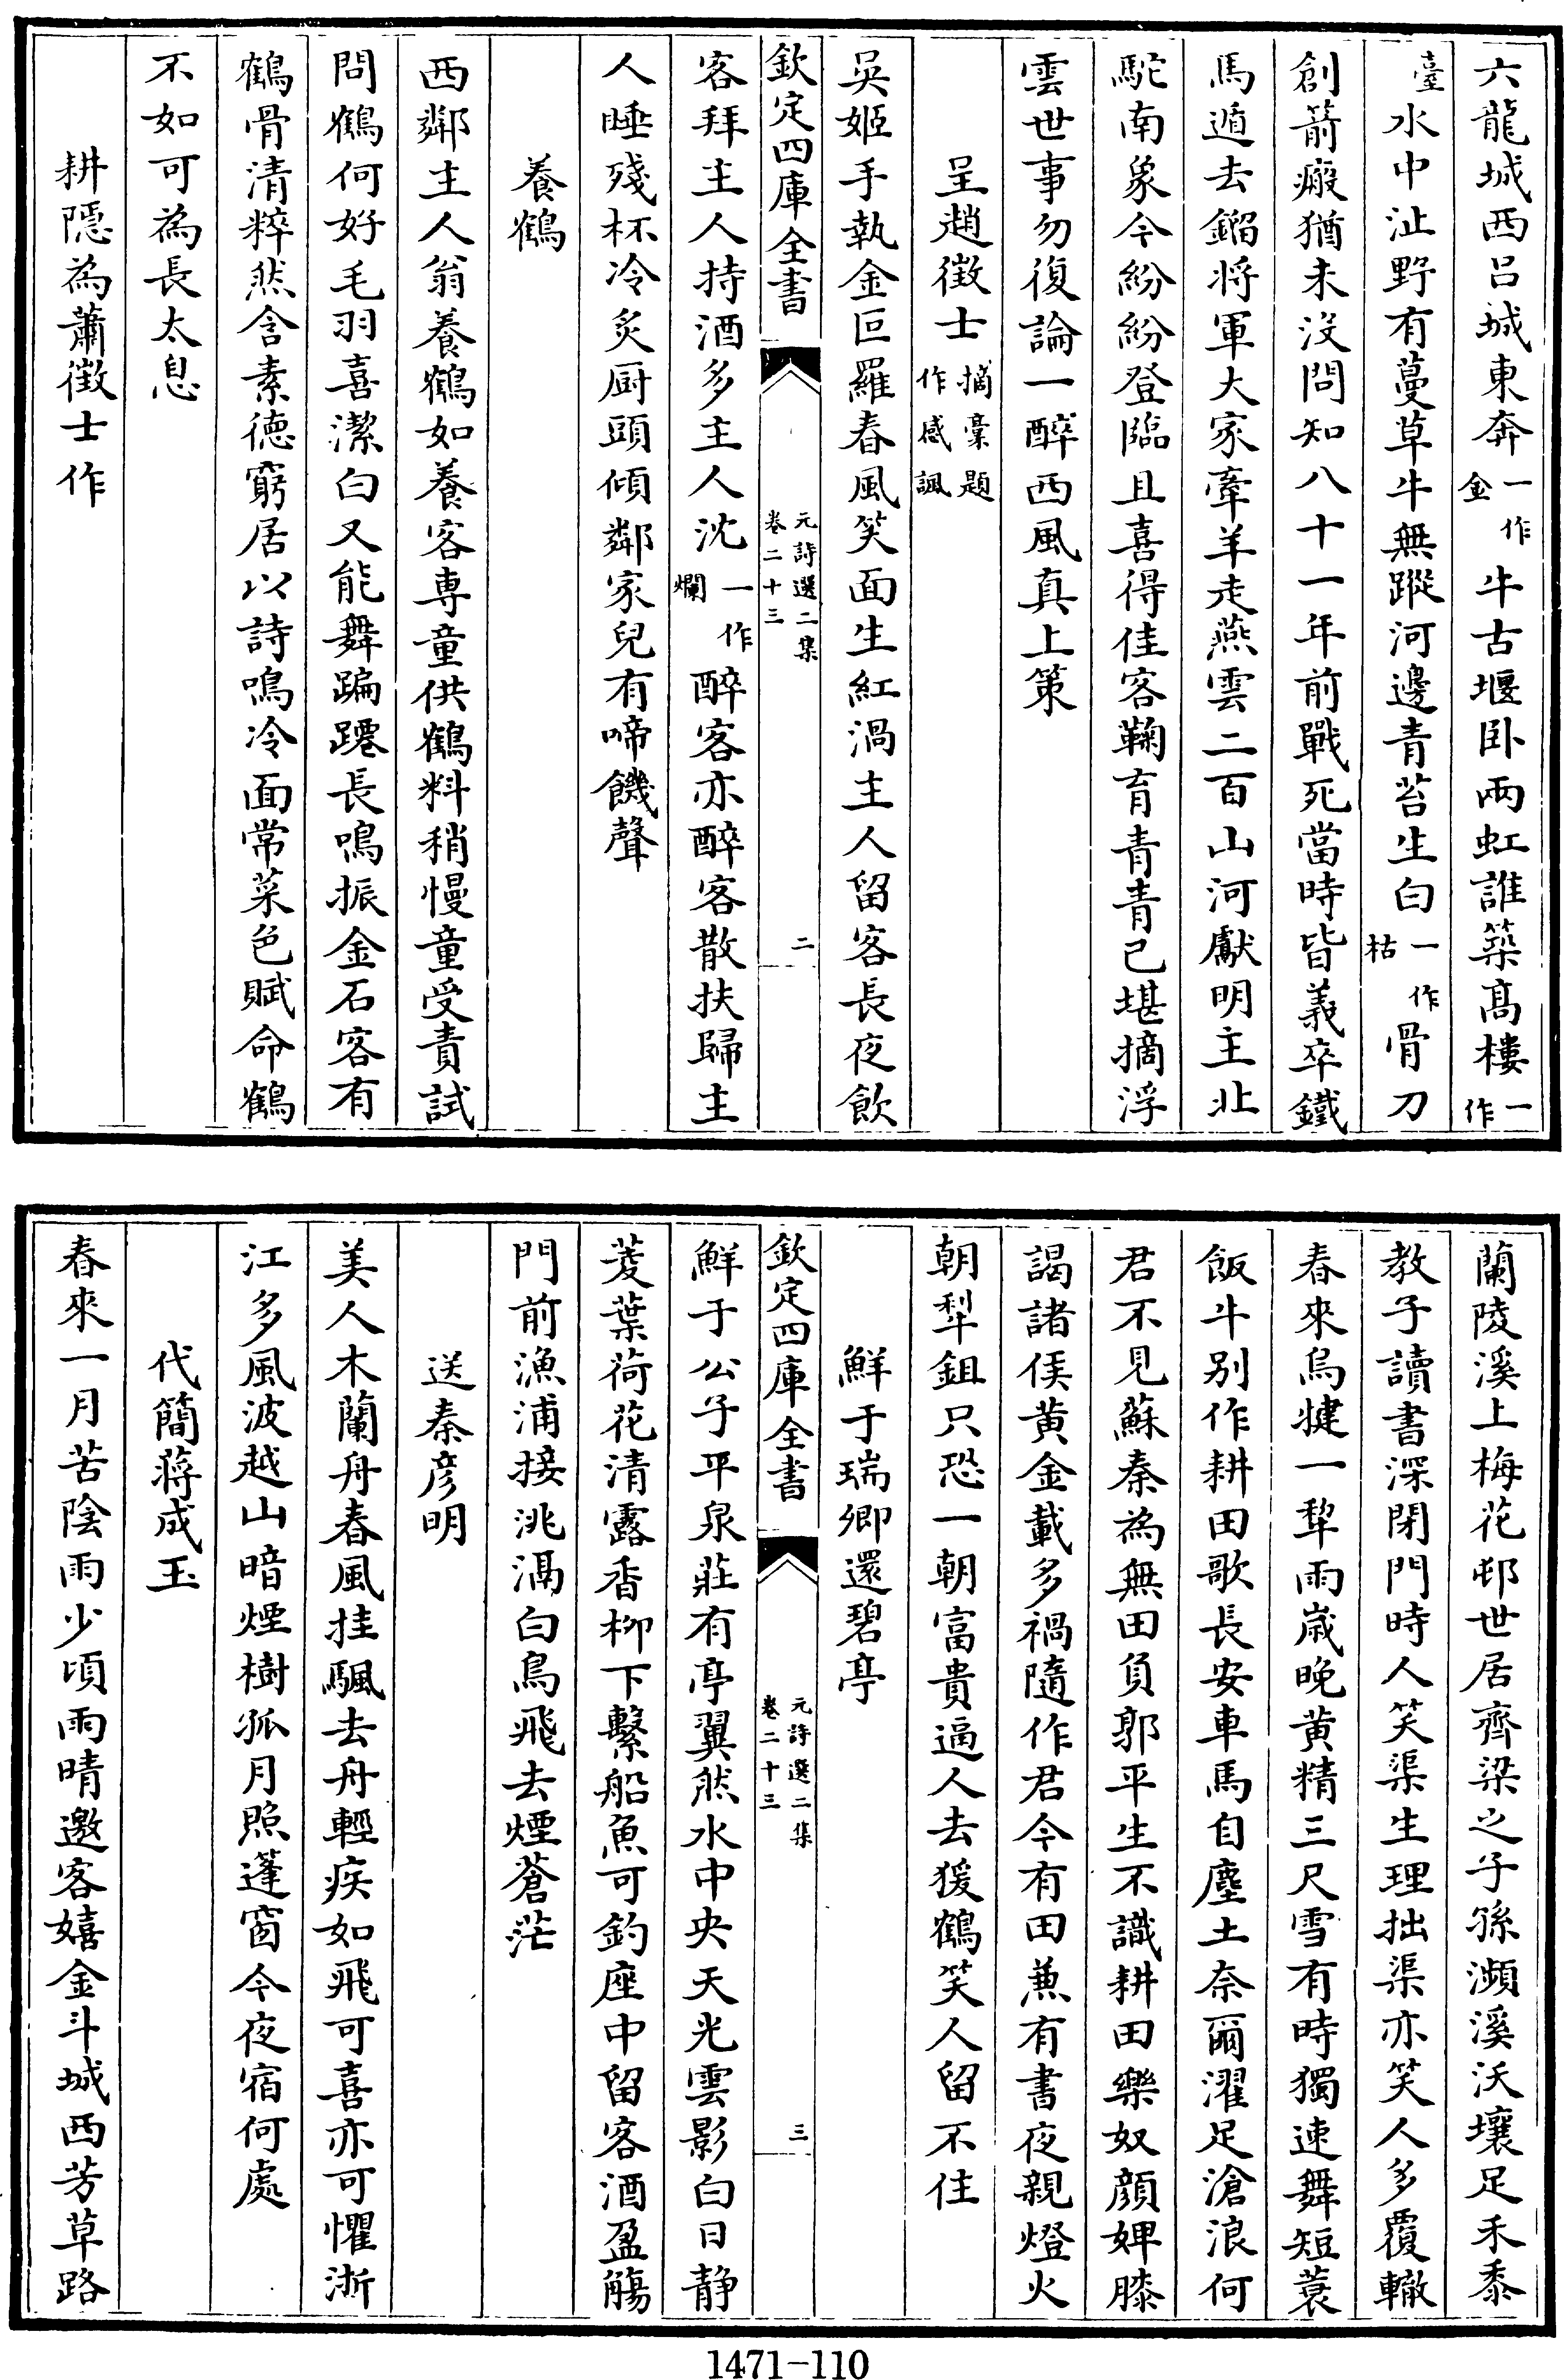 六龍城西呂城東奔一作金牛古堰卧兩虹誰築高樓一作
臺水中沚野有蔓草牛無蹤河邊青苔生白一作枯骨刀
創箭瘢猶未沒問知八十一年前戰死當時皆義卒鐵
馬遁去鎦将軍大家牽羊走燕雲二百山河獻明主北
駝南象今紛紛登臨且喜得佳客鞠育青青已堪摘浮
雲世事勿復論一醉西風真上策
呈趙徴士摘稾題作感諷
吳姬手執金叵羅春風笑面生紅渦主人留客長夜飲
欽定四庫全書
元詩選二集
卷二十三
二
客拜主人持酒多主人沈一作爛醉客亦醉客散扶歸主
人睡殘杯冷炙厨頭傾鄰家兒有啼饑聲
養鶴
西鄰主人翁養鶴如養客専童供鶴料稍慢童受責試
問鶴何好毛羽喜潔白又能舞蹁躚長鳴振金石客有
鶴骨清粹然含素徳窮居以詩鳴冷面常菜色賦命鶴
不如可為長太息
耕隱為蕭徴士作
蘭陵溪上梅花邨世居齊梁之子孫瀕溪沃壤足禾黍
教子讀書深閉門時人笑渠生理拙渠亦笑人多覆轍
春來烏犍一犂雨嵗晚黄精三尺雪有時獨速舞短蓑
飯牛别作耕田歌長安車馬自塵土奈爾濯足滄浪何
君不見蘇秦為無田負郭平生不識耕田樂奴顔婢膝
謁諸侯黄金載多禍隨作君今有田兼有書夜親燈火
朝犂鉏只恐一朝富貴逼人去猨鶴笑人留不住
鮮于瑞卿還碧亭
欽定四庫全書
元詩選二集
卷二十三
三
鮮于公子平泉莊有亭翼然水中央天光雲影白日静
菱葉荷花清露香柳下繫船魚可釣座中留客酒盈觴
門前漁浦接洮滆白鳥飛去煙蒼茫
送秦彦明
美人木蘭舟春風挂颿去舟輕疾如飛可喜亦可懼浙
江多風波越山暗煙樹孤月照篷窗今夜宿何處
代簡蔣成玉
春來一月苦陰雨少頃雨晴邀客嬉金斗城西芳草路
1471-110